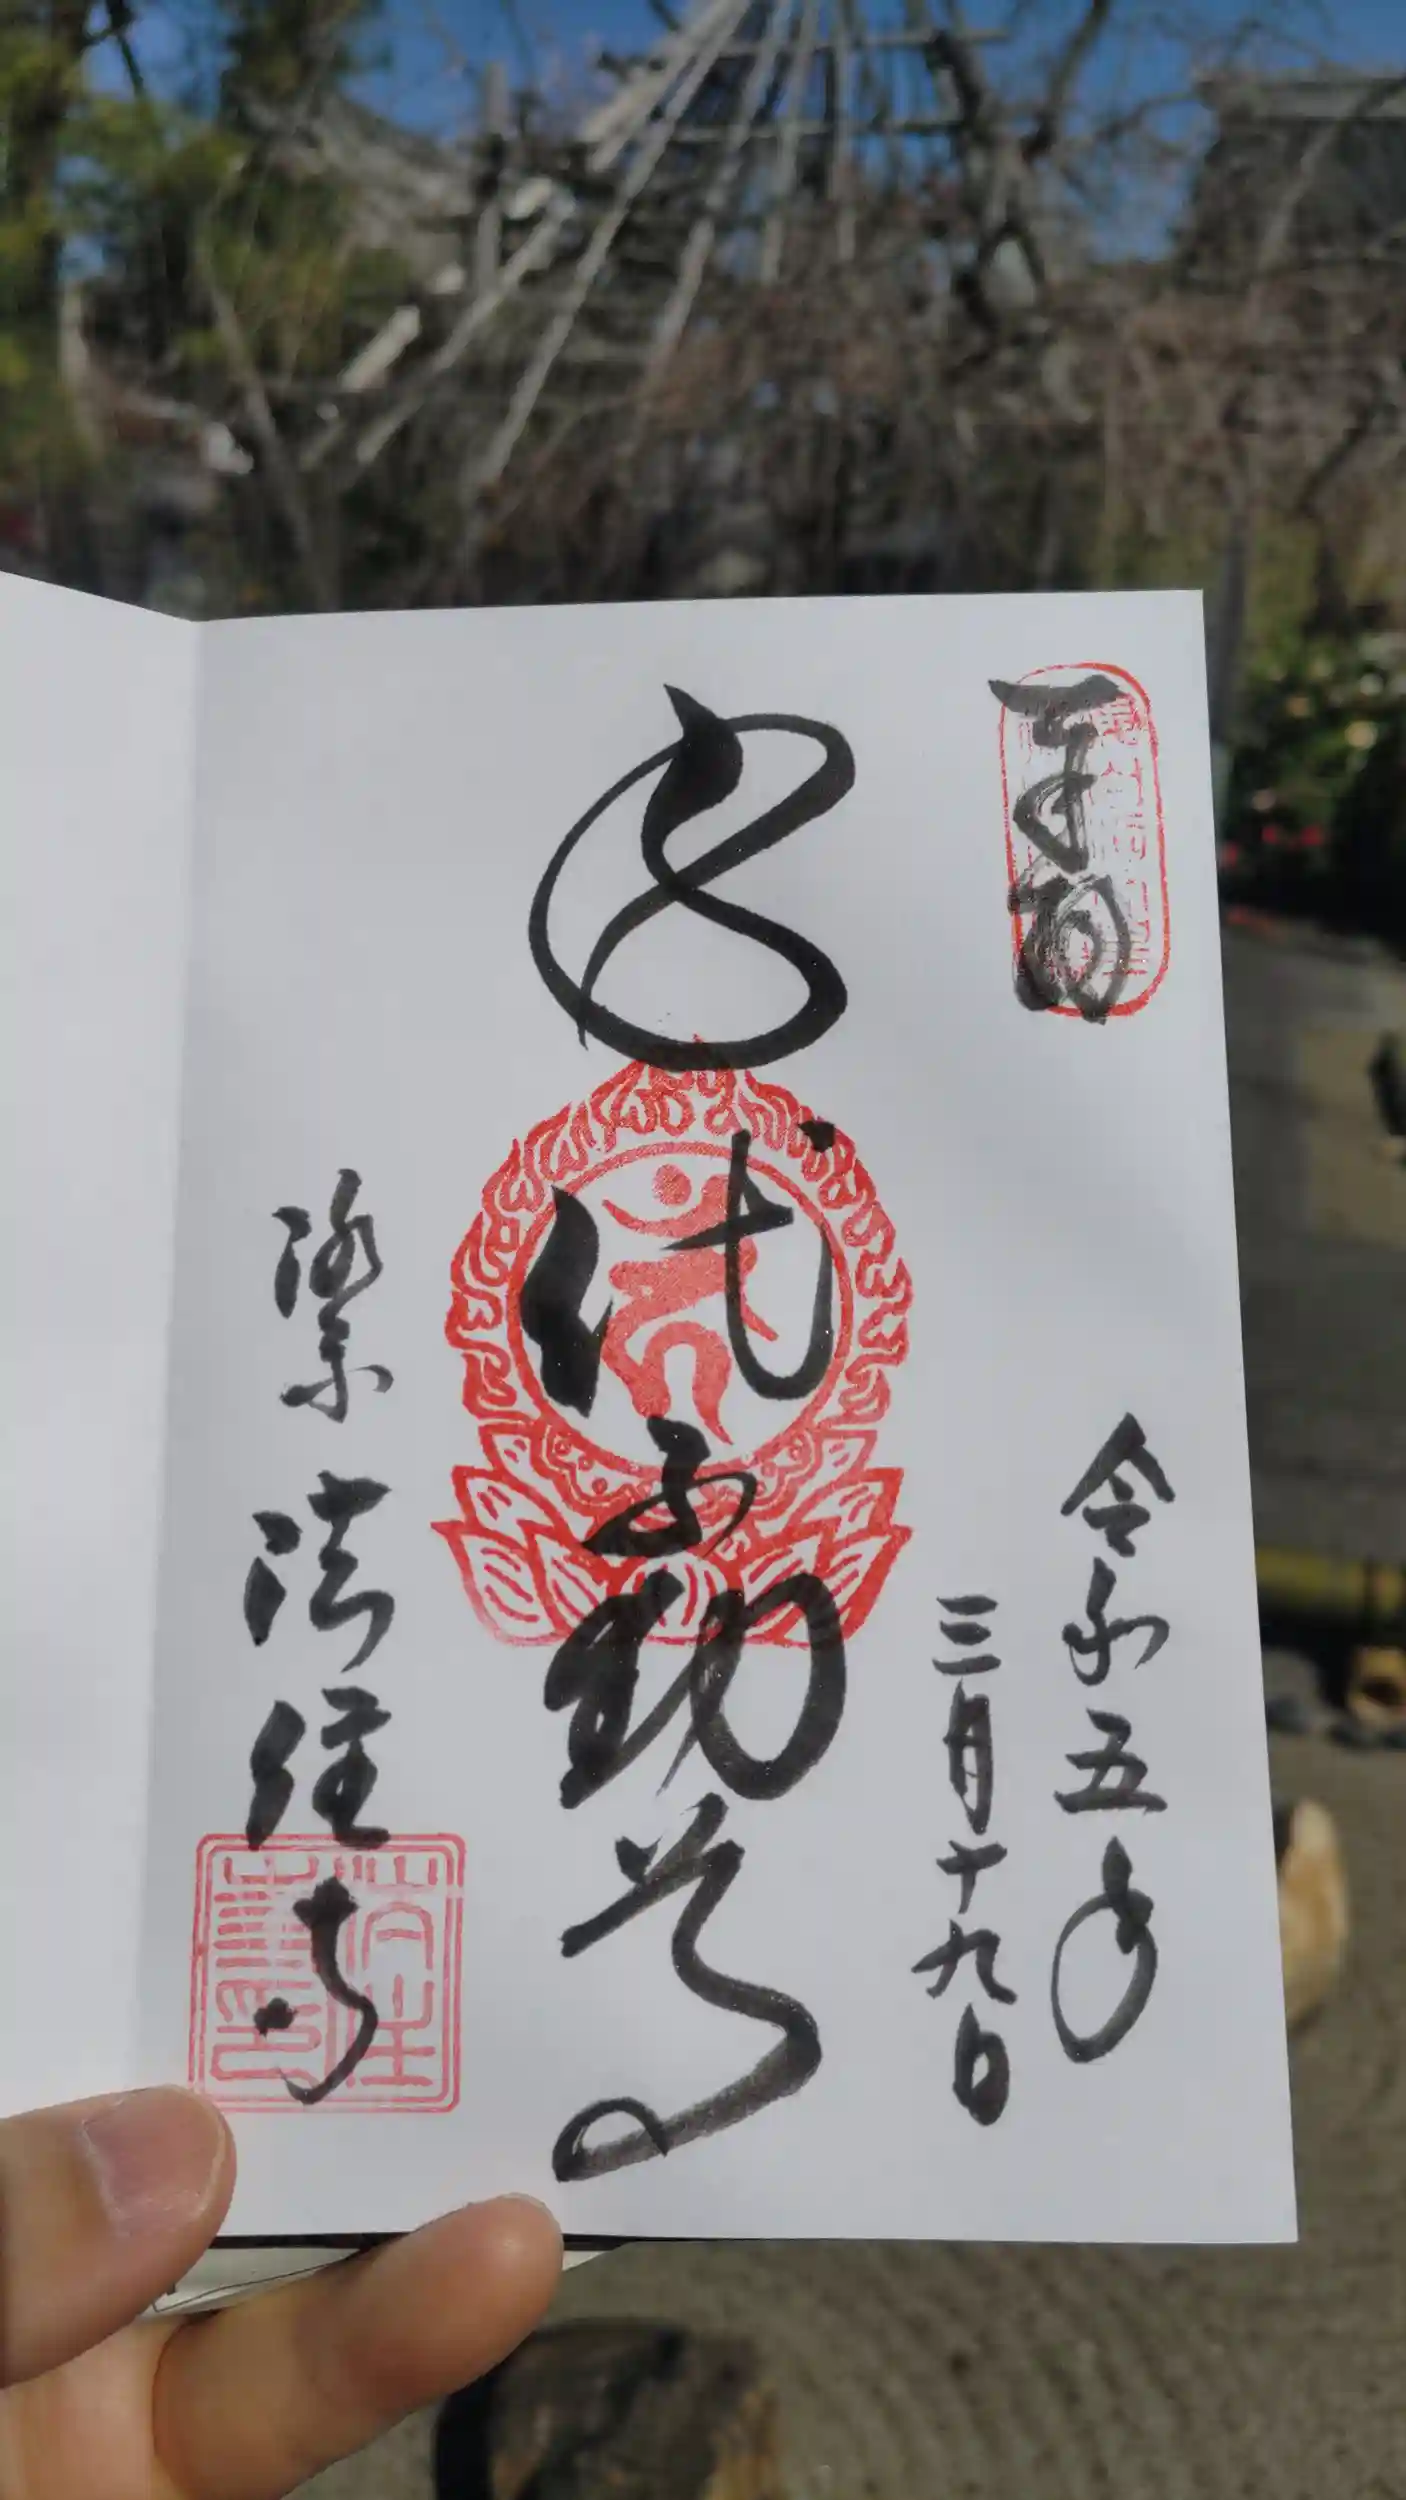 奉拝
令和五年
三月十九日
身代不動尊
法住寺